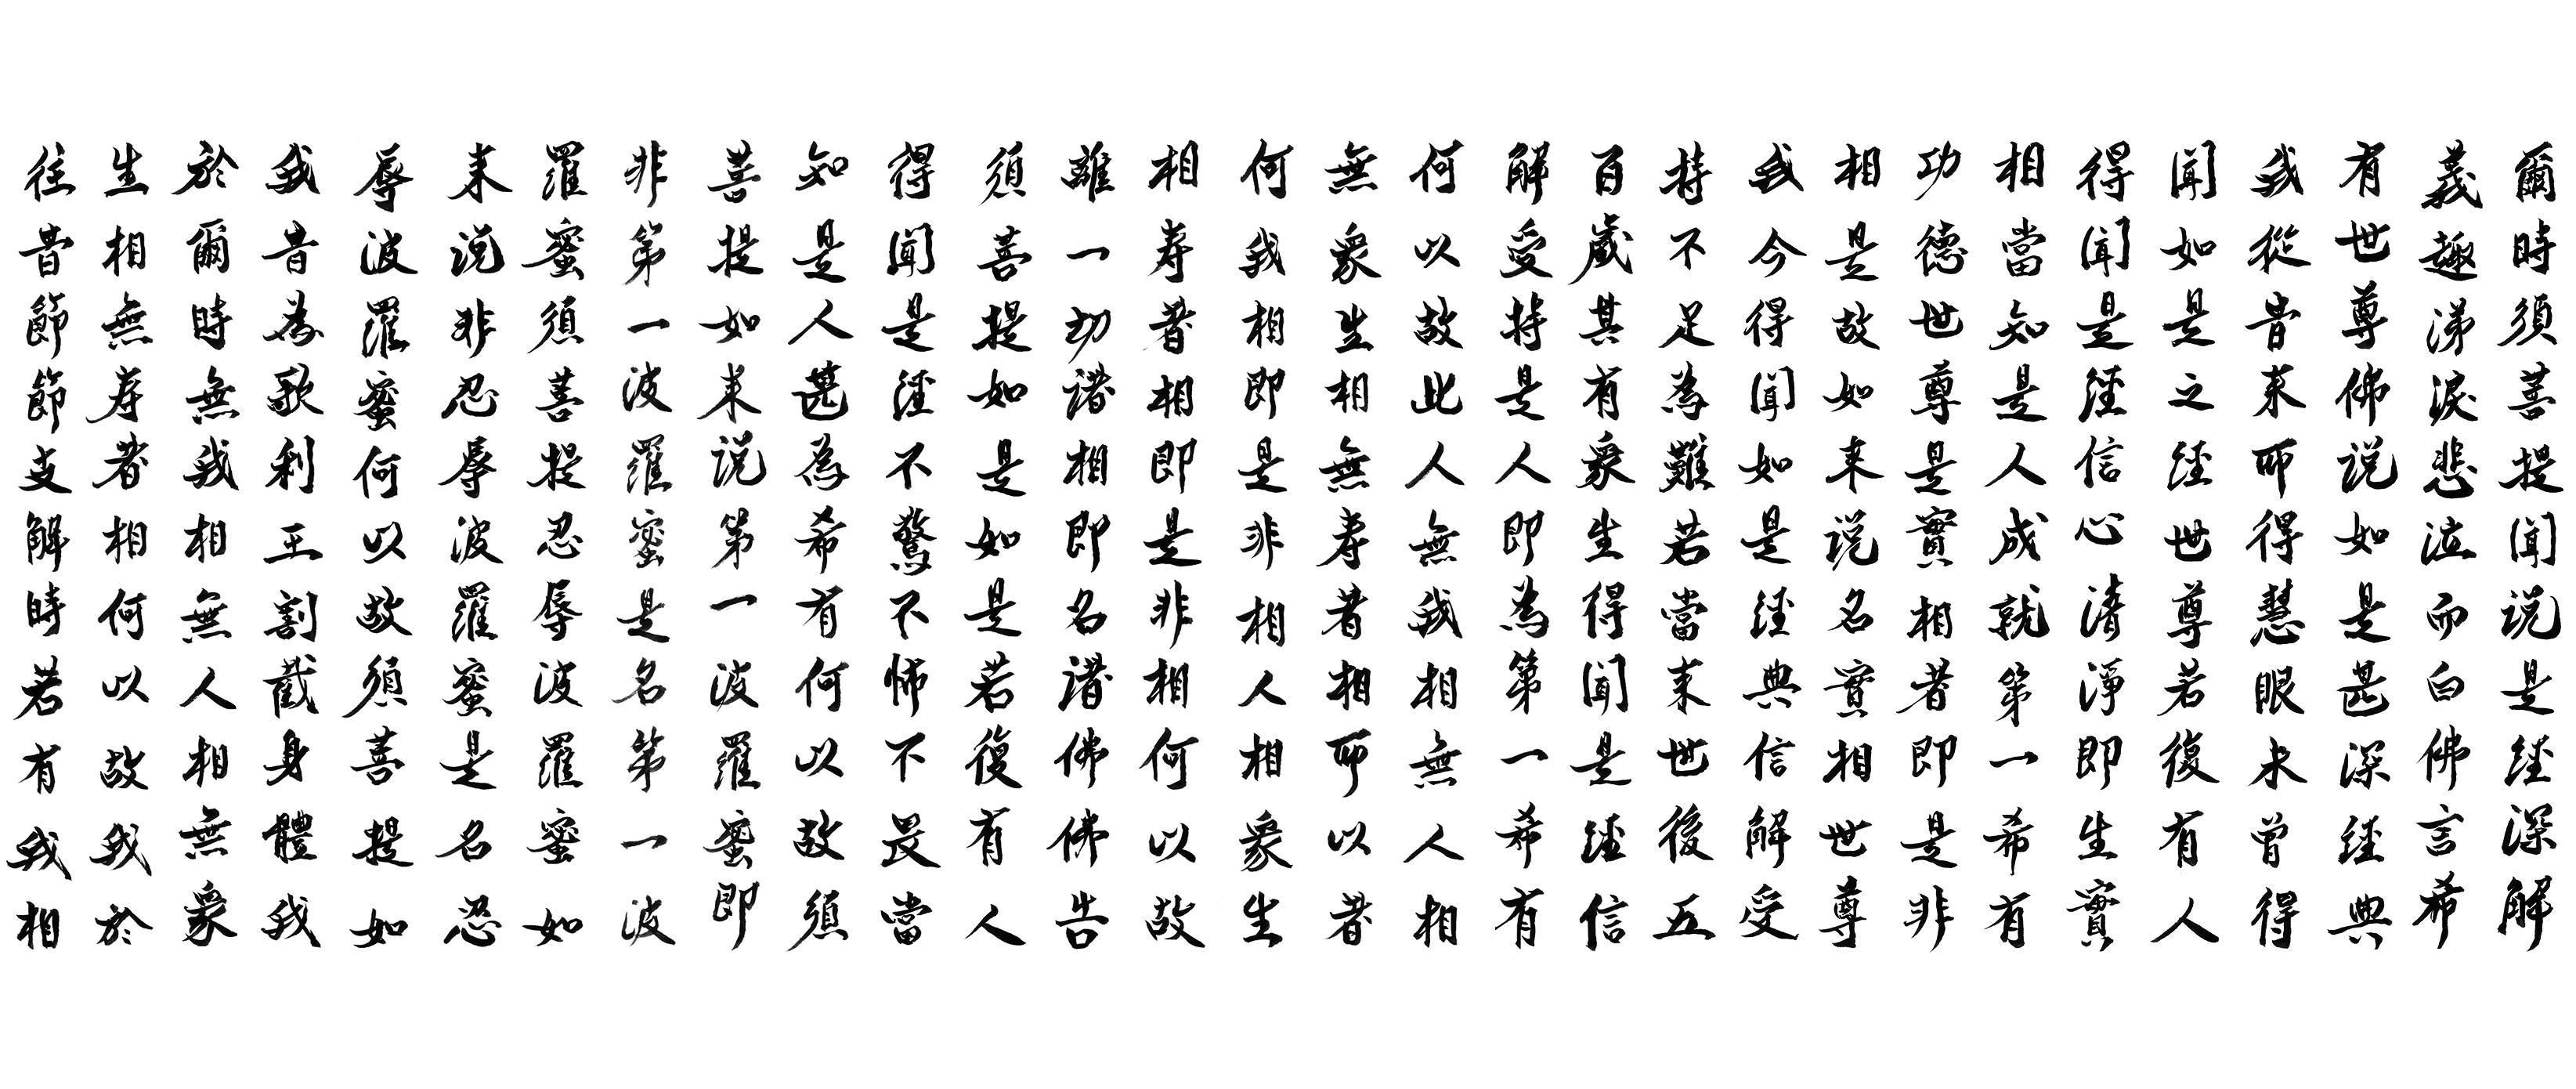 爾時須菩提聞說是經深解
義趣涕淚悲泣而白佛言希
有世尊佛說如是甚深經典
我從昔來所得慧眼未曾得
聞如是之經世尊若復有人
得聞是經信心清淨即生實
相當知是人成就第一希有
功德世尊是實相者即是非
相是故如來說名實相世尊
我今得聞如是經典信解受
持不足為難若當來世後五
百歲其有衆生得聞是經信
解受持是人即為第一希有
何以故此人無我相無人相
無衆生相無壽者相所以者
何我相即是非相人相衆生
相壽者相即是非相何以故
離一切諸相即名諸佛佛告
須菩提如是如是若復有人
得聞是經不驚不怖不畏當
知是人甚為希有何以故須
菩提如來說第一波羅蜜即
非第一波羅蜜是名第一波
羅蜜須菩提忍辱波羅蜜如
來說非忍辱波羅蜜是名忍
辱波羅蜜何以故須菩提如
我昔為歌利王割截身體我
於爾時無我相無人相無衆
生相無壽者相何以故我於
往昔節節支解時若有我相